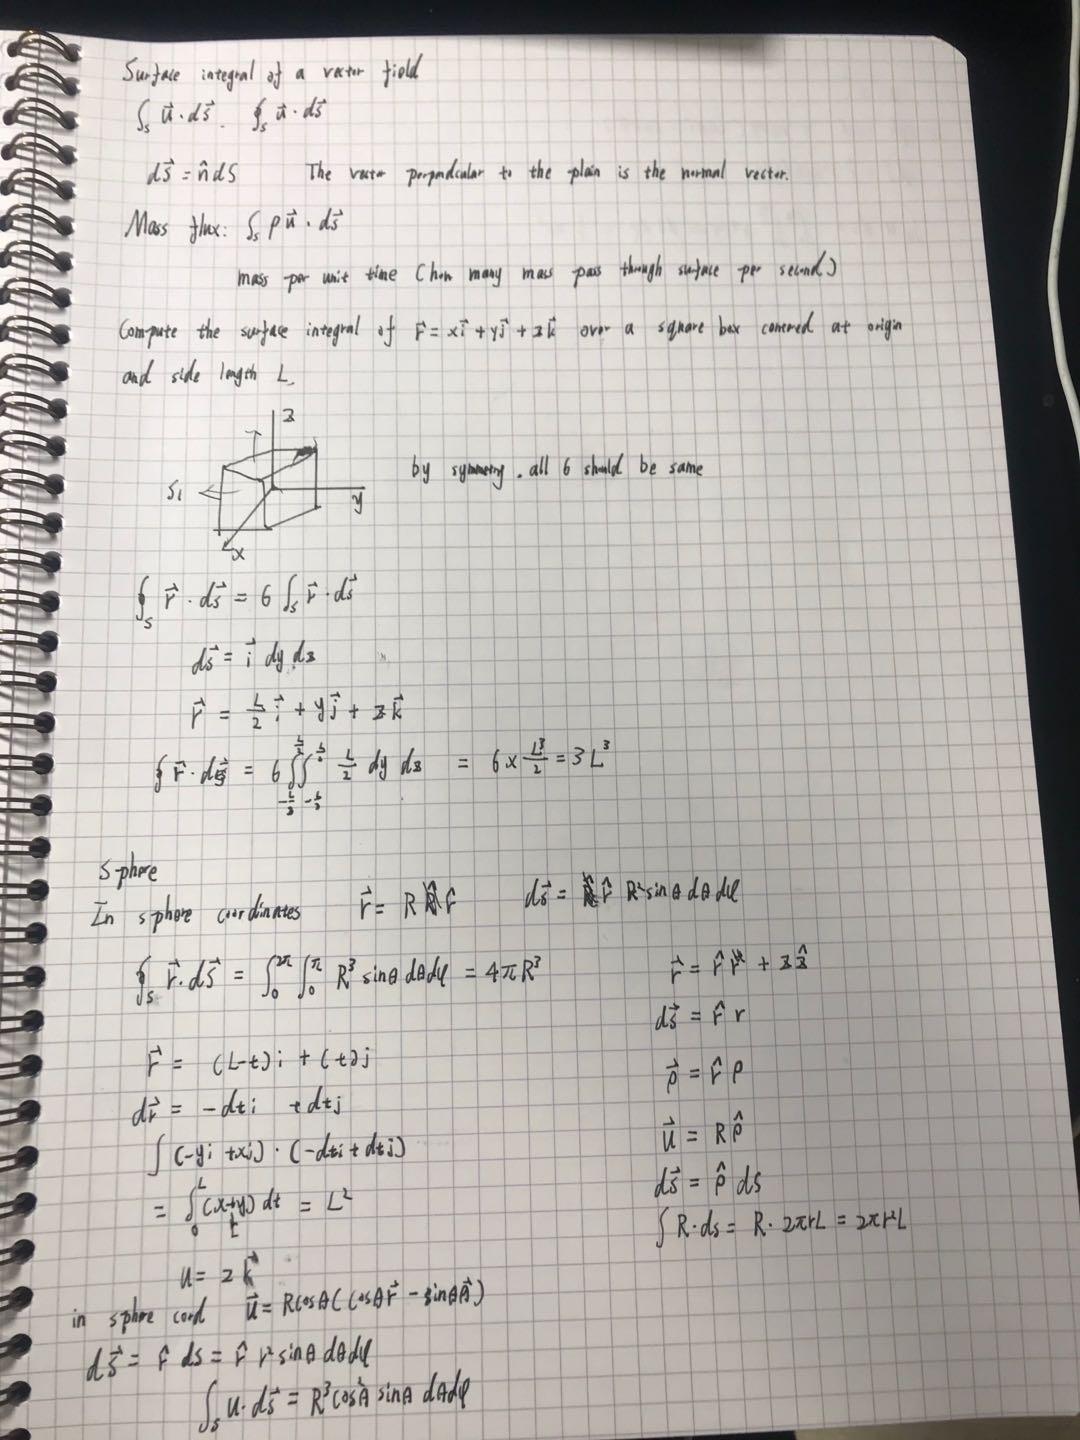 Surface integral of a vector field
∫ₛ u⃗·ds⃗. ∮ₛ u⃗·ds⃗
ds⃗ = n̂ dS The vector perpendcular to the plain is the normal vector.
Mass flux: ∫ₛ ρu⃗·ds⃗
mass per unit time (how many mass pass though surface per second)
Compute the surface integral of r⃗ = xi⃗ + yj⃗ + zk⃗ over a square box centered at origin
and side length L.
z
S₁
y
x
by symmetry. all 6 should be same
∮ₛ r⃗·ds⃗ = 6 ∫ₛ r⃗·ds⃗
ds⃗ = i⃗ dy dz
r⃗ = L/2 i⃗ + yj⃗ + zk⃗
∮ r⃗·ds⃗ = 6 ∫∫ L/2 dy dz = 6 × L³/2 = 3L³
Sphere
In sphere coordinates r⃗ = R r̂ ds⃗ = r̂ R² sinθ dθ dφ
∮ₛ r⃗·ds⃗ = ∫₀^2π ∫₀^π R³ sinθ dθ dφ = 4πR³
r⃗ = (L-t)i + (t)j
dr⃗ = -dti + dtj
∫(-yi + xj)·(-dti + dtj)
= ∫₀^L (x+y) dt = L²
L
r⃗ = r̂ r + zẑ
ds⃗ = r̂ r
ρ⃗ = r̂ ρ
u⃗ = Rρ̂
ds⃗ = ρ̂ ds
∫ R·ds = R·2πrL = 2πr²L
u = zk⃗
in sphere cord u⃗ = Rcosθ(cosθ r⃗ - sinθ θ⃗)
ds⃗ = r̂ ds = r̂ r² sinθ dθ dφ
∫ₛ u·ds⃗ = R³cos²θ sinθ dθ dφ